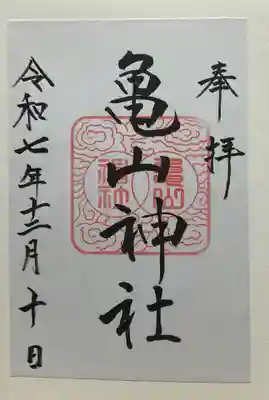 奉拝
亀山神社
令和七年十二月十日